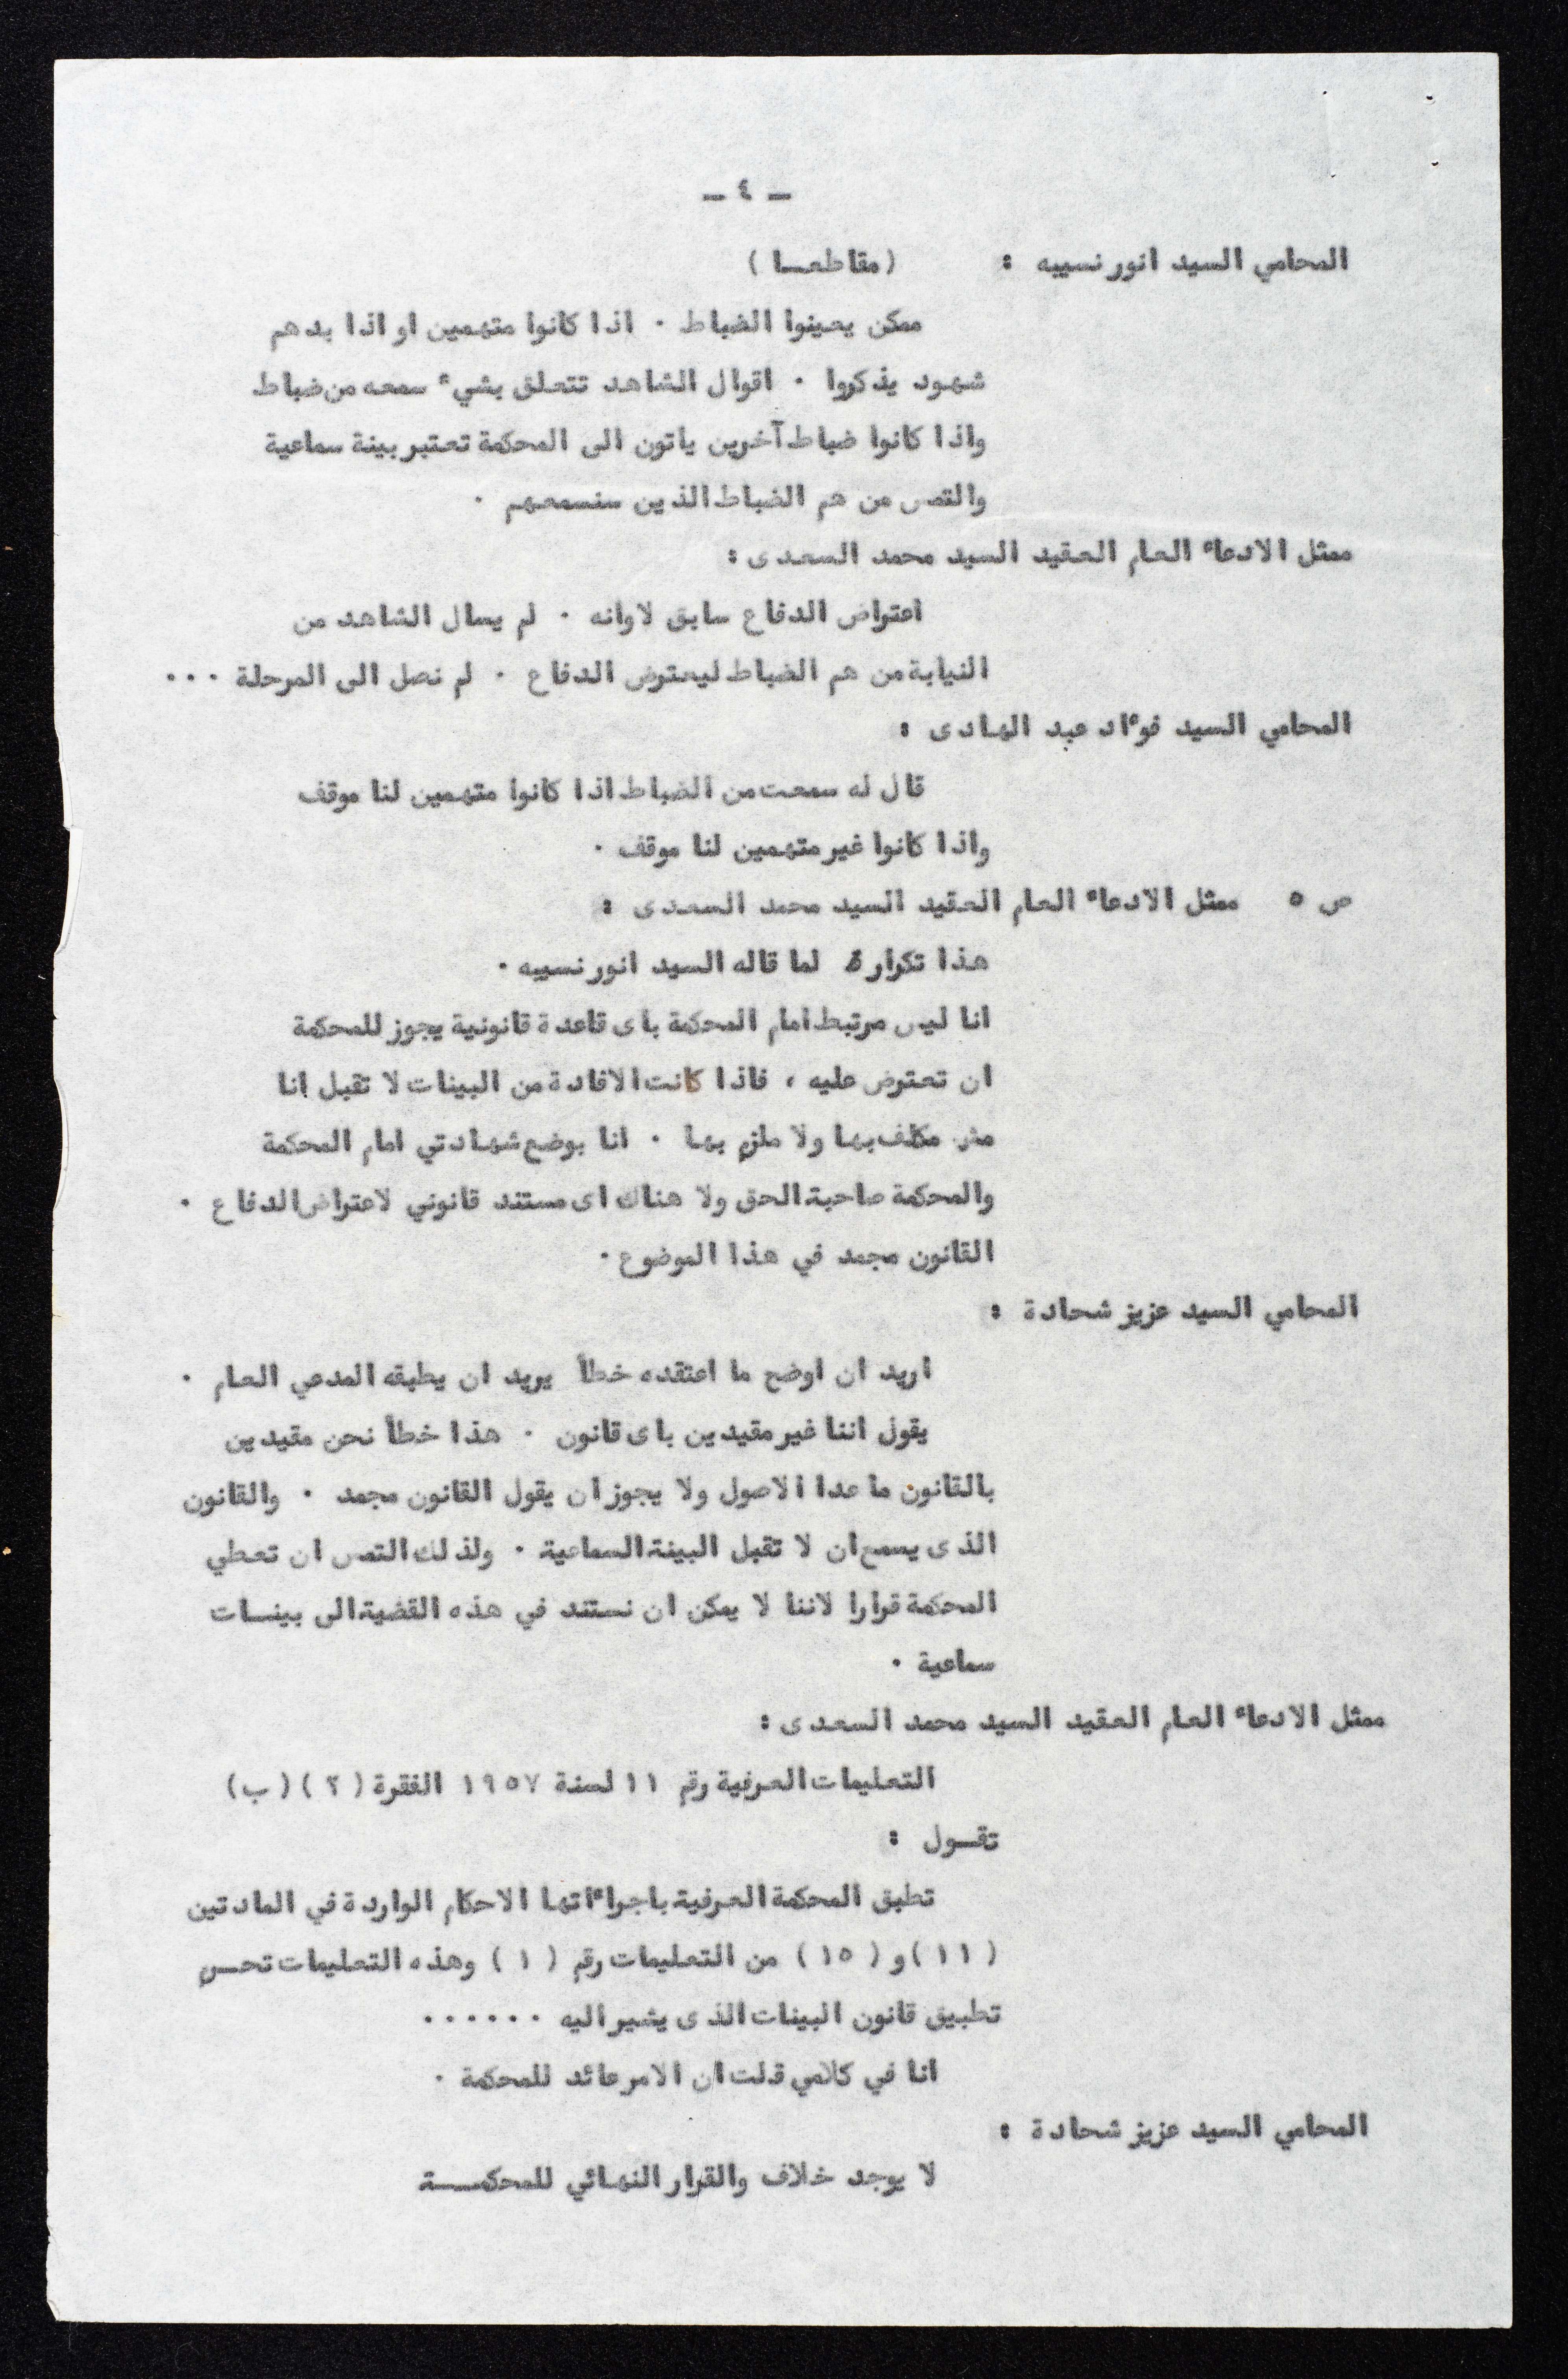 ـ ٤ ـ
المحامي السيد انور نسيبه : (مقاطعـــا )
ممكن يعينوا الضباط ٠ اذا كانوا متهمين او اذا بدهم
شهود يذكروا ٠ اقوال الشاهد تتعلق بشيء سمعه من ضباط
واذا كانوا ضباط آخرين ياتون الى المحكمة تعتبر بينة سماعية
والتمس من هم الضباط الذين سنسمعهم ٠
ممثل الادعاء العام العقيد السيد محمد السعدى :
اعتراض الدفاع سابق لاوانه ٠ لم يسال الشاهد من
النيابة من هم الضباط ليعترض الدفاع ٠ لم نصل الى المرحلة ٠٠٠
المحامي السيد فوءاد عبد الهادى :
قال له سمعت من الضباط اذا كانوا متهمين لنا موقف
واذا كانوا غير متهمين لنا موقف ٠
ص ٥ ممثل الادعاء العام العقيد السيد محمد السعدى :
هذا تكرار لما قاله السيد انور نسيبه ٠
انا ليس مرتبط امام المحكمة باى قاعدة قانونية يجوز للمحكمة
ان تعترض عليه ، فاذا كانت الافادة من البينات لا تقبل انا
مش مكلف بها ولا ملزم بها ٠ انا بوضع شهادتي امام المحكمة
والمحكمة صاحبة الحق ولا هناك اى مستند قانوني لاعتراض الدفاع ٠
القانون مجمد في هذا الموضوع ٠
المحامي السيد عزيز شحادة :
اريد ان اوضح ما اعتقده خطأ يريد ان يطبقه المدعي العام ٠
يقول اننا غير مقيدين باى قانون ٠ هذا خطأ نحن مقيدين
بالقانون ما عدا الاصول ولا يجوز ان يقول القانون مجمد ٠ والقانون
الذى يسمح ان لا تقبل البينة السماعية ٠ ولذلك التمس ان تعطي
المحكمة قرارا لاننا لا يمكن ان نستند في هذه القضية الى بينـــات
سماعية ٠
ممثل الادعاء العام العقيد السيد محمد السعدى :
التعليمات العرفية رقم ١١ لسنة ١٩٥٧ الفقرة ( ٢ ) ( ب)
تقـــول :
تطبق المحكمة العرفية باجراءاتها الاحكام الواردة في المادتين
( ١١ ) و ( ١٥ ) من التعليمات رقم ( ١ ) وهذه التعليمات تحــرم
تطبيق قانون البينات الذى يشير اليه ٠٠٠٠٠٠
انا في كلامي قلت ان الامر عائد للمحكمة ٠
المحامي السيد عزيز شحادة :
لا يوجد خلاف والقرار النهائي للمحكمـــــة